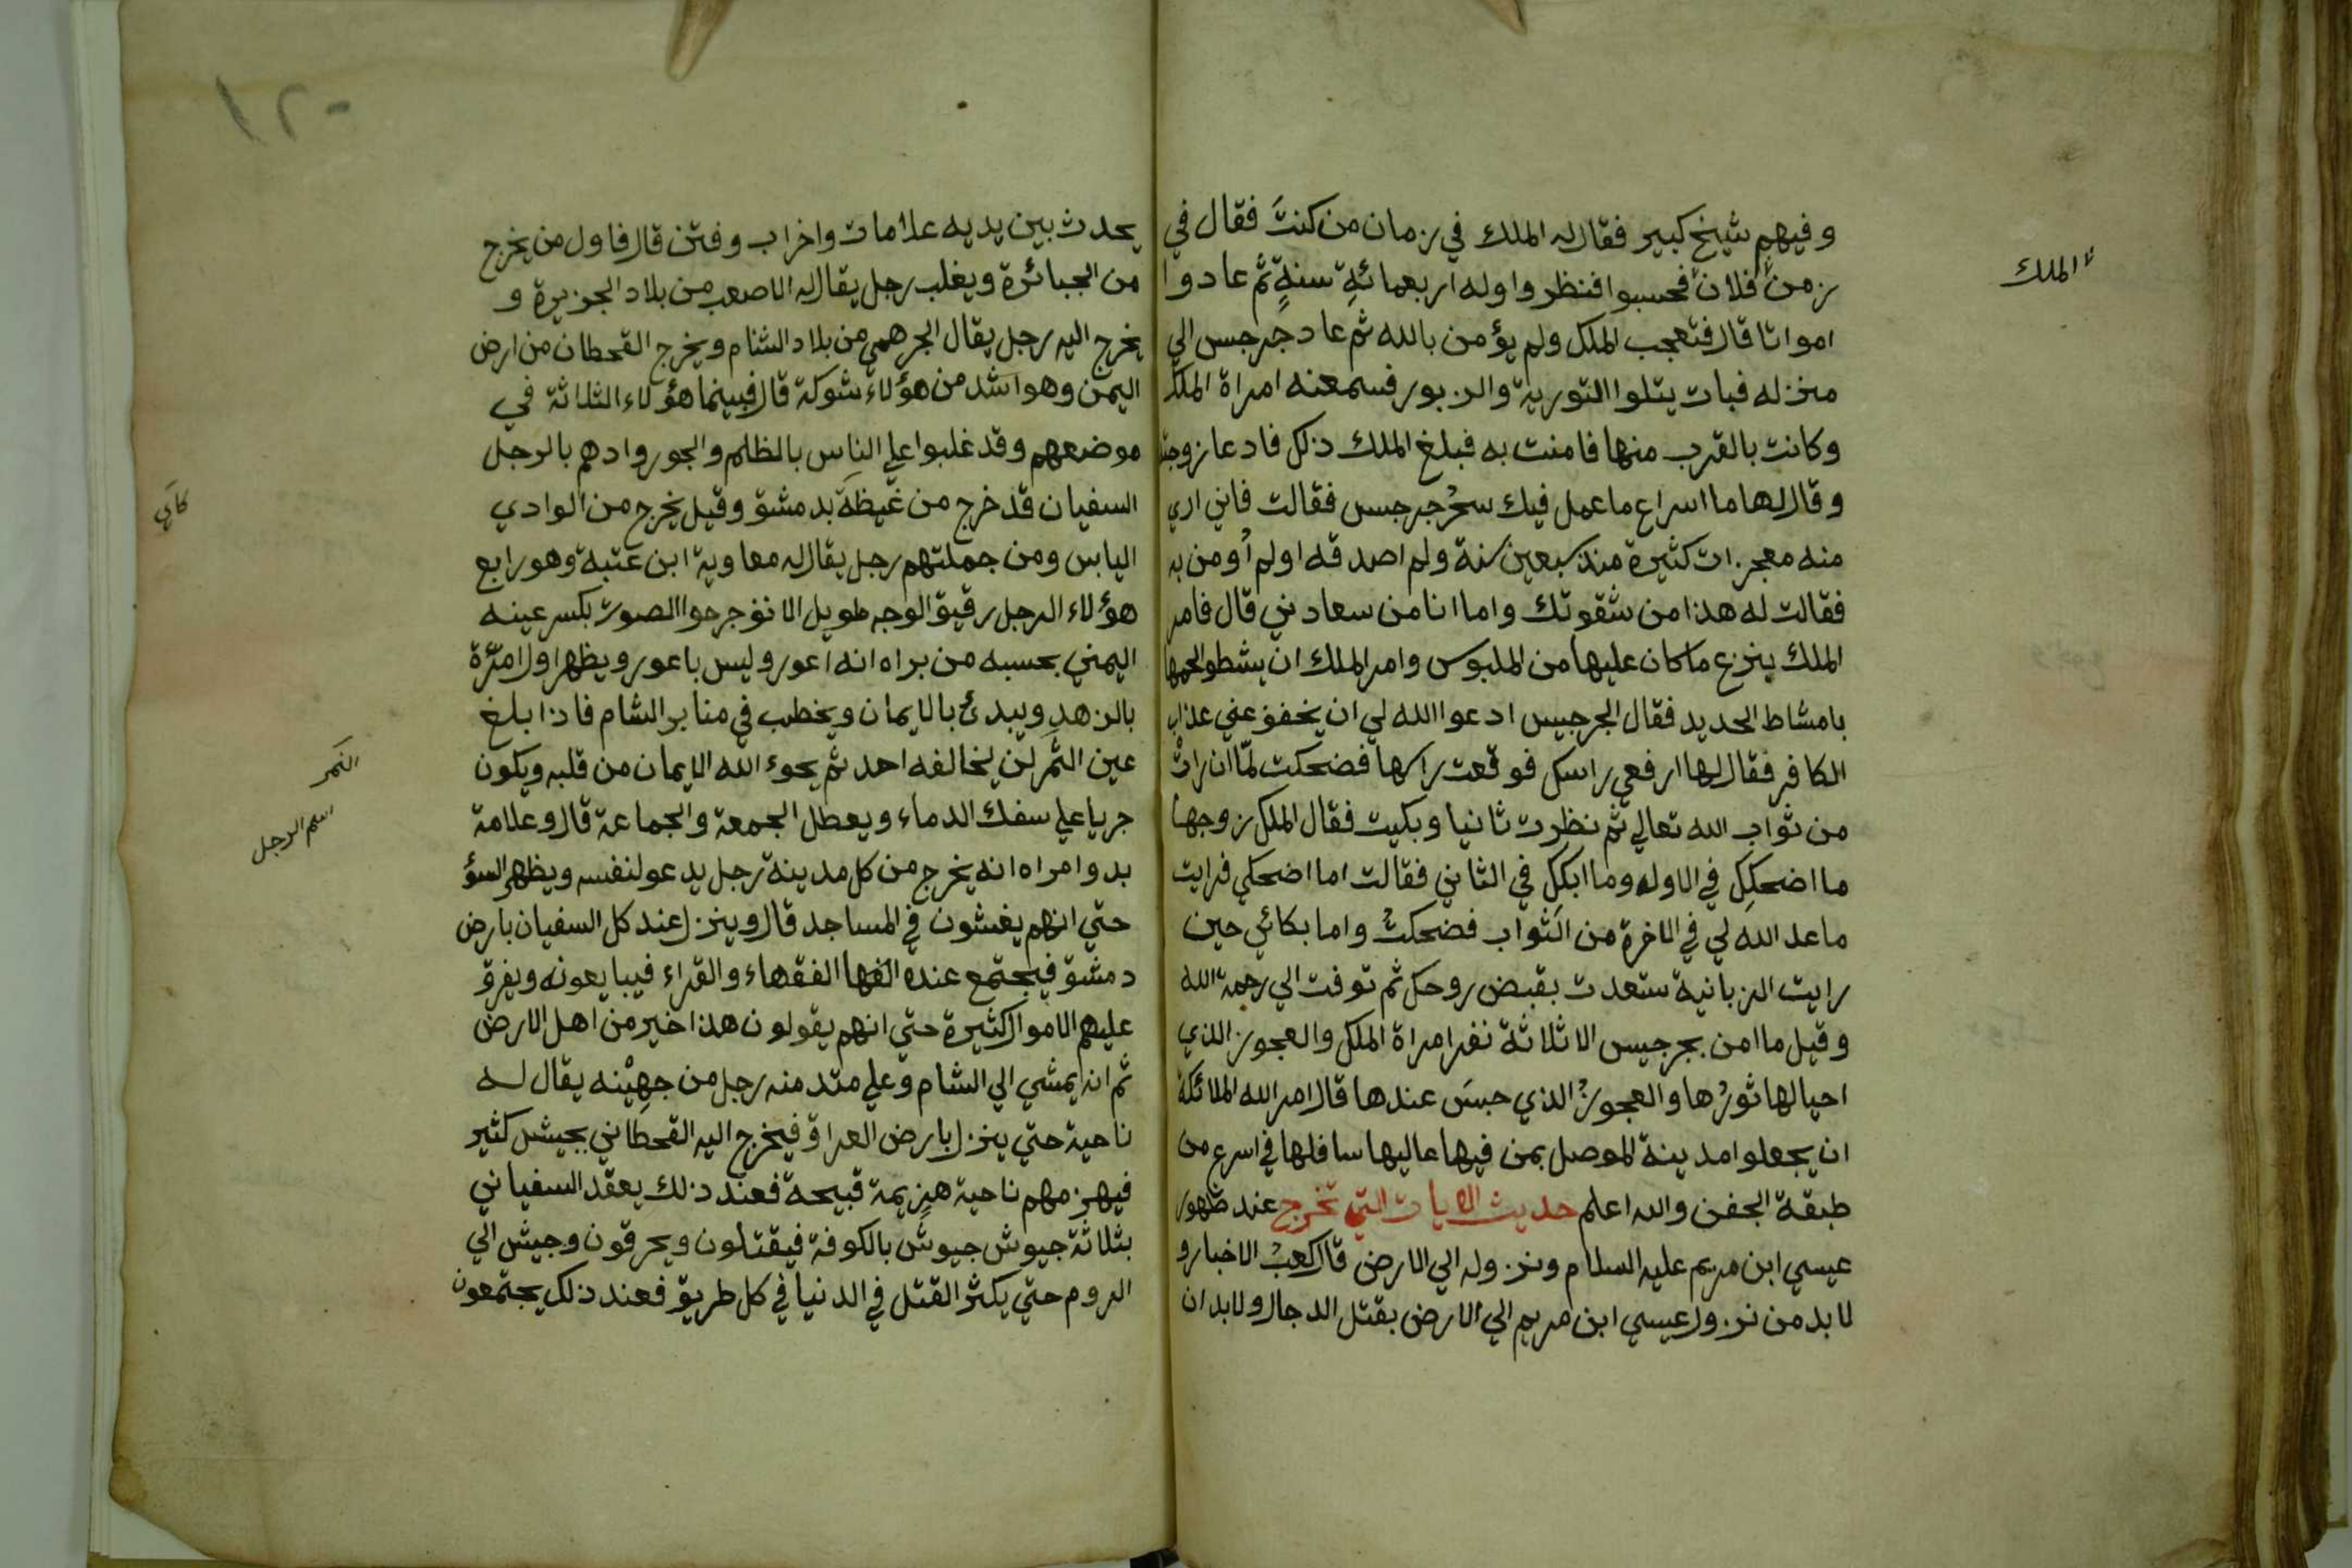 وفيهم شيخ كبير فقال له الملك في زمان من كنتَ فقال في
زمن فلان فحسبوا فنظروا وله اربعمائةِ سنةٍ ثم عادوا
الملك
امواتا قال فتعجب الملك ولم يؤمن بالله ثم عاد جرجس الي
منزله فبات يتلوا التورية والزبور فسمعنه امراة الملك
وكانت بالقرب منها فامنت به فبلغ الملك ذلك فادعا زوجته
وقال لها ما اسراع ما عمل فيك سحْر جرجس فقالت فاني اري
منه معجزات كثيرة منذ سبعين سنة ولم اصدقه اولم أومن به
فقالت له هذا من شقوتك واما انا من سعادتي قال فامر
الملك ينزع ما كان عليها من الملبوس وامر الملك ان يشطو الحمها
بامشاط الحديد فقال الجرجيس ادعوا الله لي ان يخفف عني عذاب
الكافر فقال لها ارفعي راسك فوقعت راسها فضحكت لمّا ان راتْ
من ثواب الله تعالي ثم نظرت ثانيا وبكيت فقال الملك زوجها
ما اضحكِك في الاوله وما ابكك في الثاني فقالت اما اضحكي فرايت
ما عد الله لي في الاخرة من الثواب فضحكتْ واما بكائي حين
رايت الزبانية ستعدت بقبض روحك ثم توفت الي رحمة الله
وقيل ما امن بجرجيس الا ثلاثة نفر امراة الملك والعجوز الذي
احيا لها ثورُها والعجوزُ الذي حبسَ عندها قال امر الله الملائكة
ان يجعلوا مدينة الموصل بمن فيها عاليها سافلها في اسرع من
طبقة الجفن والله اعلم حديث الايات التي تخرج عند ظهور
عيسي ابن مريم عليه السلام ونزوله الي الارض قال كعبُ الاخبار و
لا بد من نزول عيسي ابن مريم الي الارض بقتل الدجال ولا بد ان
١٢٠
يحدث بين يديه علامات واخراب وفتن قال فاول من يخرج
من الجبائرة ويغلب رجل يقال له الاصعب من بلاد الجزيرة و
يخرج اليه رجل يقال الجرهمي من بلاد الشام ويخرج القحطان من ارض
اليمن وهو اشد من هؤلاء شوكة قال فبينما هؤلاء الثلاثة في
موضعهم وقد غلبوا علي الناس بالظلم والجور وادهم بالرجل
السفيان قد خرج من غيظَة بدمشق وقيل يخرج من الوادي
اليابس ومن جملتهم رجل يقال له معاوية ابن عتبة وهو رابع
هؤلاء الرجل رقيق الوجه طويل الانف جرحوا الصوت بكسر عينه
اليمني بحسبه من براه انه اعور وليس باعور ويظهر اول امرّة
بالزهدِ ويبدئ بالايمان ويخطب في منابر الشام فاذا بلغ
عين الثَّمر لن يخالفه احد ثم يحوء الله الايمان من قلبه ويكون
النمر
اسم الرجل
جريا علي سفك الدماء ويعطل الجمعة والجماعة قال وعلامة
بدوامراه انه يخرج من كل مدينة رجل يدعو لنفسه ويظهر السؤ
حتي انهم يغشون في المساجد قال وينزل عند كل السفيان بارض
دمشق فيجتمع عنده الفها الفقهاء والقراء فيبايعونه ويفرق
عليهم الاموال كثيرة حتي انهم يقولون هذا خير من اهل الارض
ثم انه يمشي الي الشام وعلي متد منه رجل من جهيْنه يقال له
ناحية حتي ينزل بارض العراق فيخرج اليه القحطاني بجيش كثير
فيهزمهم ناحية هزيمة قبيحة فعند ذلك يعقد السفياني
بثلاثة جيوش جيوش بالكوفة فيقتلون ويحرقون وجيش الي
الروم حتي يكثر القتل في الدنيا في كل طريق فعند ذلك يجتمعون